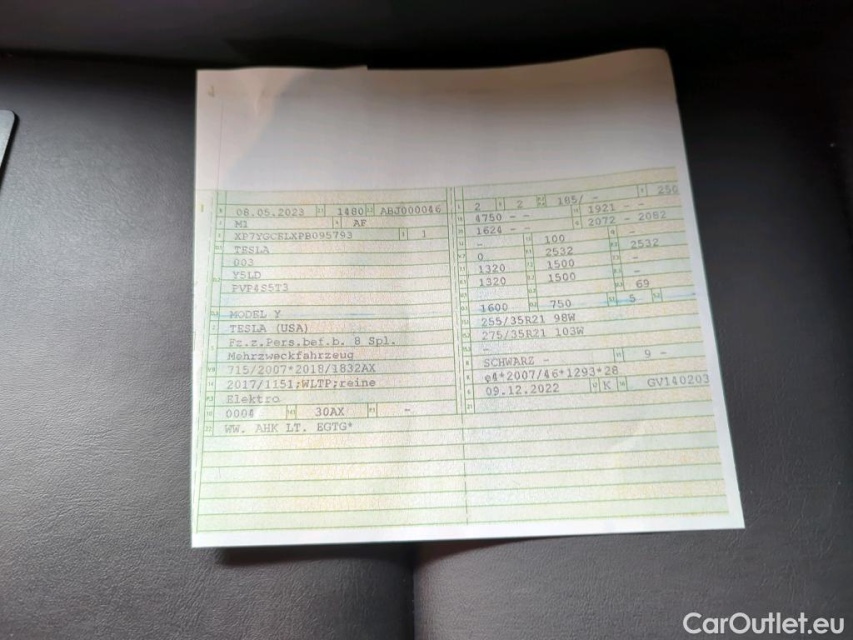 08.05.2023 1480 ABJ000046
M1 AF
XP7YGCELXPB095793 1
TESLA
003
Y5LD
PVP4S5T3
MODEL Y
TESLA (USA)
Fz.z.Pers.bef.b. 8 Spl.
Mehrzweckfahrzeug
715/2007*2018/1832AX
2017/1151;WLTP;reine
Elektro
0004 30AX -
WW. AHK LT. EGTG*
2 2 185/ - 250
4750 - - 1921 - -
1624 - - 2072 - 2082
- 100 -
0 2532 2532
1320 1500 -
1320 1500 -
69
1600 750 5
255/35R21 98W
275/35R21 103W
-
SCHWARZ - 9 -
e4*2007/46*1293*28
09.12.2022 K GV140203
CarOutlet.eu